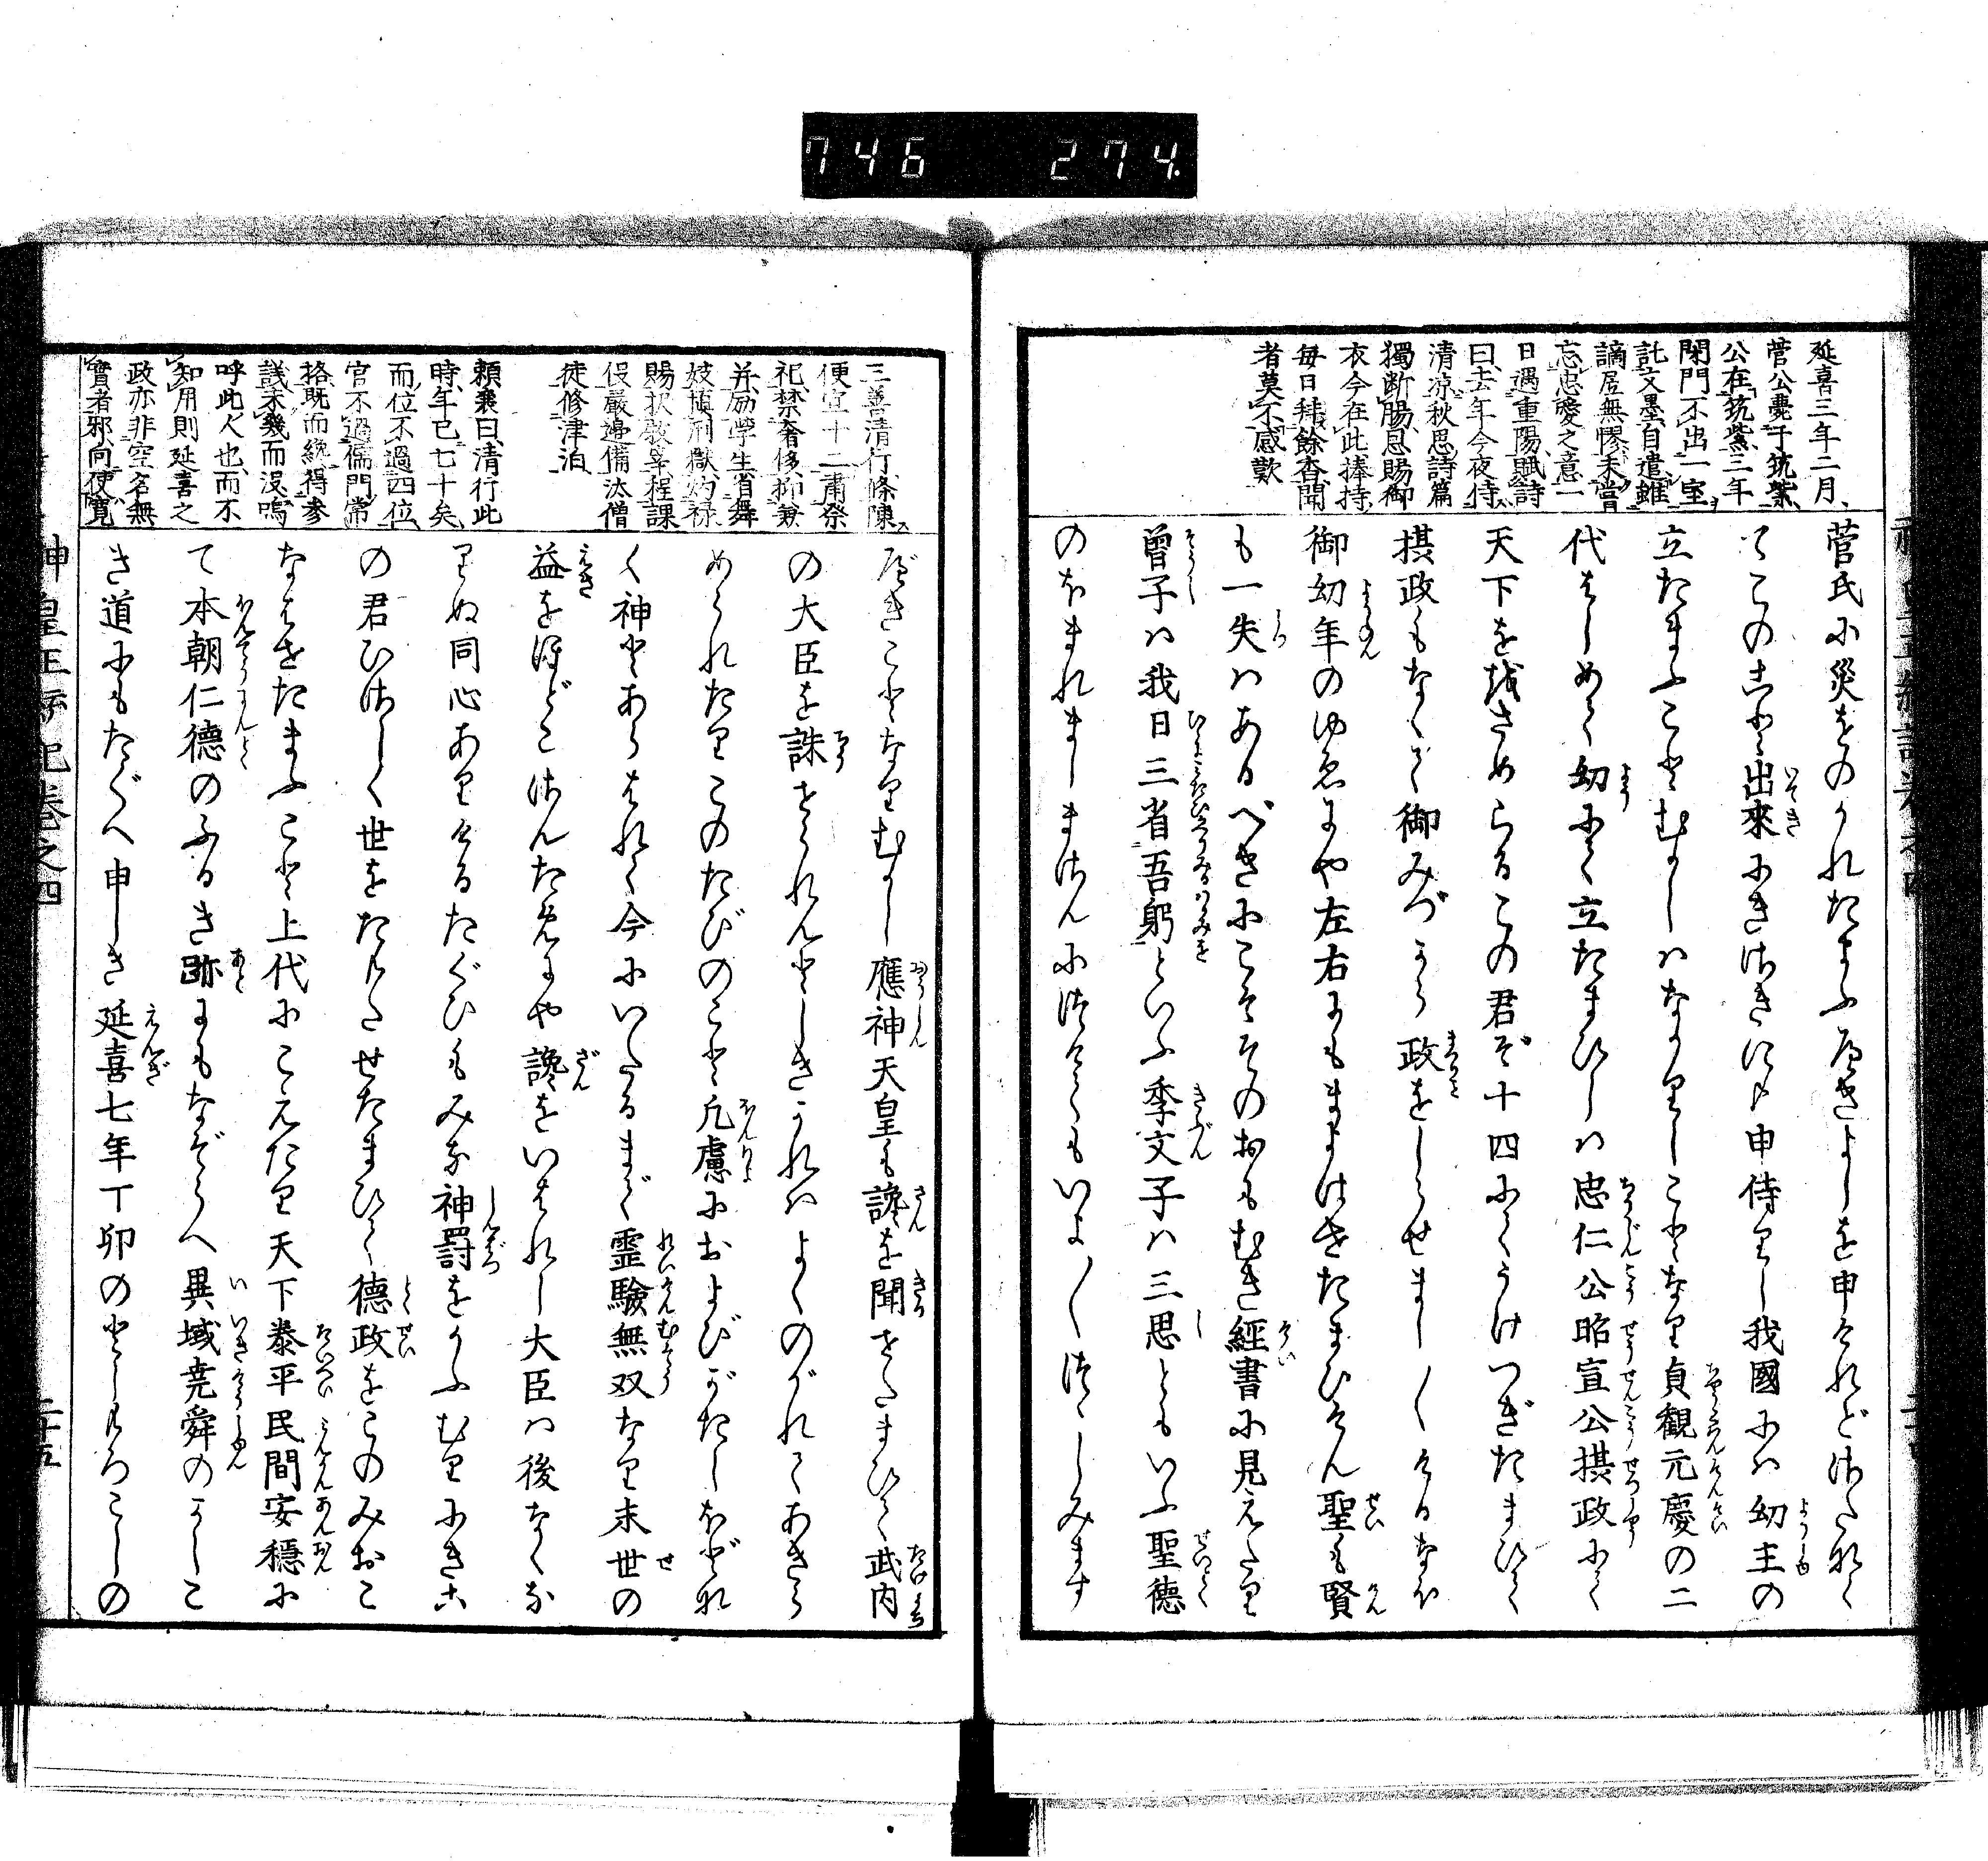 746 274.
延喜三年二月
菅公薨于筑紫
公在筑紫三年
閉門不出一室
託文墨自遣雖
謫居無憀未嘗
忘忠愛之意一
日遇重陽賦詩
曰去年今夜侍
清凉秋思詩篇
獨断腸恩賜御
衣今在此捧持
毎日拜餘香聞
者莫不感歎
菅氏に災をのがれたまふべきよしを申けれどさたなく
てこのこと出來にきさきにも申侍りし我國には幼主の
立たまふことむかしはなかりしことなり貞觀元慶の二
代はじめて幼にて立たまひしは忠仁公昭宣公摂政にて
天下を
さめらるこの君ぞ十四にてうけつぎたまひて
摂政もなくて御みづから政をしらせまし〳〵けるなほ
御幼年のゆゑにや左右にもまよはせたまひけん聖も賢
も一失はあるべきにこそそのおもむき經書に見えたり
曽子は我日三省吾躬といふ季文子は三思ともいふ聖德
のほまれましまさんにつけてもいよ〳〵つゝしみます
べきことなりむかし應神天皇も讒を聞せたまひて武内
の大臣を誅せられんとしきかれはよくのがれてあきら
められたりこのたびのこと凡慮におよびがたしほどな
く神とあらはれて今にいたるまで霊驗無双なり末世の
益をほどこさんためにや讒をいはれし大臣は後なくな
りぬ同心ありけるたぐひもみな神罰をかふむりにきこ
の君ひさしく世をたもたせたまひて德政をこのみおこ
なはせたまふこと上代にこえたり天下泰平民間安穏に
て本朝仁徳のふるき跡にもなぞらへ異域尭舜のかしこ
き道にもたぐへ申しき延喜七年丁卯のとしもろこしの
三善清行條陳
便宜十二肅祭
祀禁奢侈抑兼
并励學生省舞
妓慎刑獄均禄
賜
程課
役嚴邉備汰僧
徒修津泊
頼襄曰清行此
時年已七十矣
而位不過四位
官不過儒門常
挌既而纔得參
議未幾而没嗚
呼此人也而不
知用則延喜之
政亦非空名無
實者邪向使寛
神皇正統記巻之四
二十五